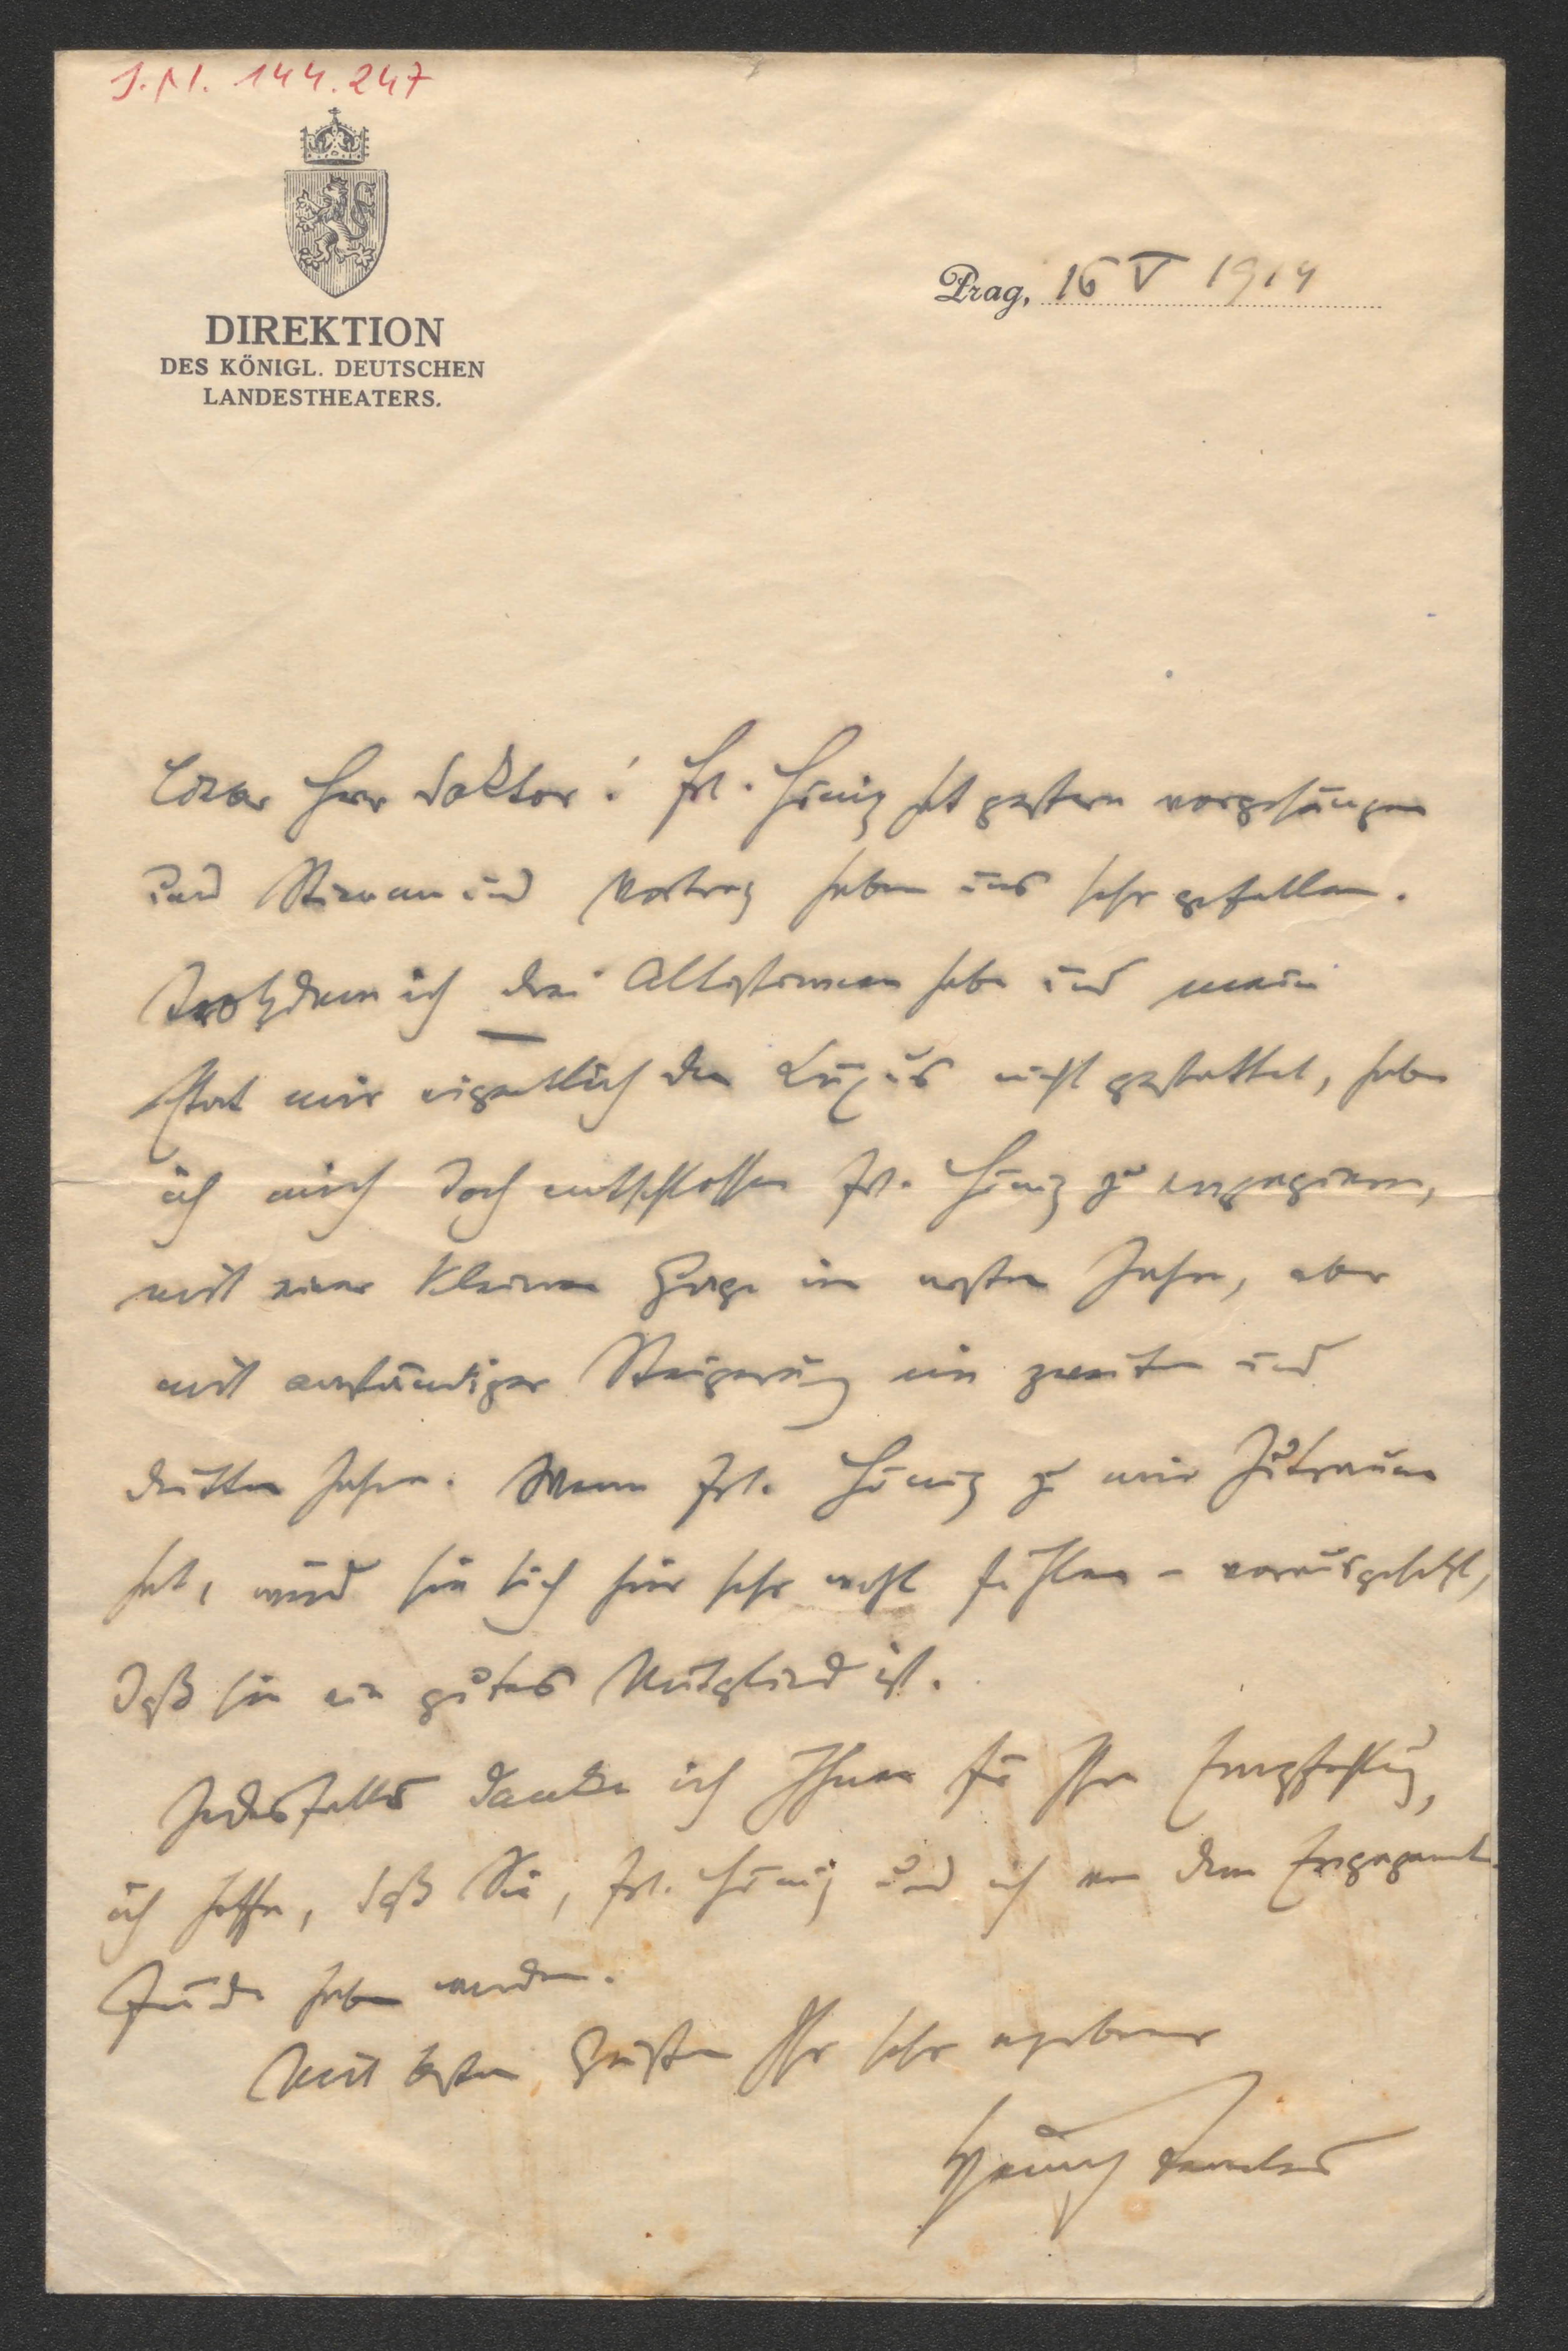 J.N. 144.247
DIREKTION
DES KÖNIGL. DEUTSCHEN
LANDESTHEATERS.
Prag, 16 V 1914
Lieber Herr Doktor! Frl. hat gestern vorgesungen
und Stimme und Vortrag haben uns sehr gefallen.
Trotzdem ich drei Altistinnen habe und mein
Etat mir eigentlich den Luxus nicht gestattet, habe
ich mich doch entschlossen Frl. zu engagieren,
mit einer kleinen Gage im ersten Jahre, aber
mit anständiger Steigerung im zweiten und
dritten Jahre. Wenn Frl. zu mir Zutrauen
hat, wird sie sich hier sehr wohl fühlen – vorausgesetzt,
daß sie ein gutes Mitglied ist.
Jedesfalls danke ich Ihnen für Ihre Empfehlung,
ich hoffe, daß Sie, Frl. und ich von dem Engagement
Freude haben werden.
Mit besten Grüßen Ihr sehr ergebener